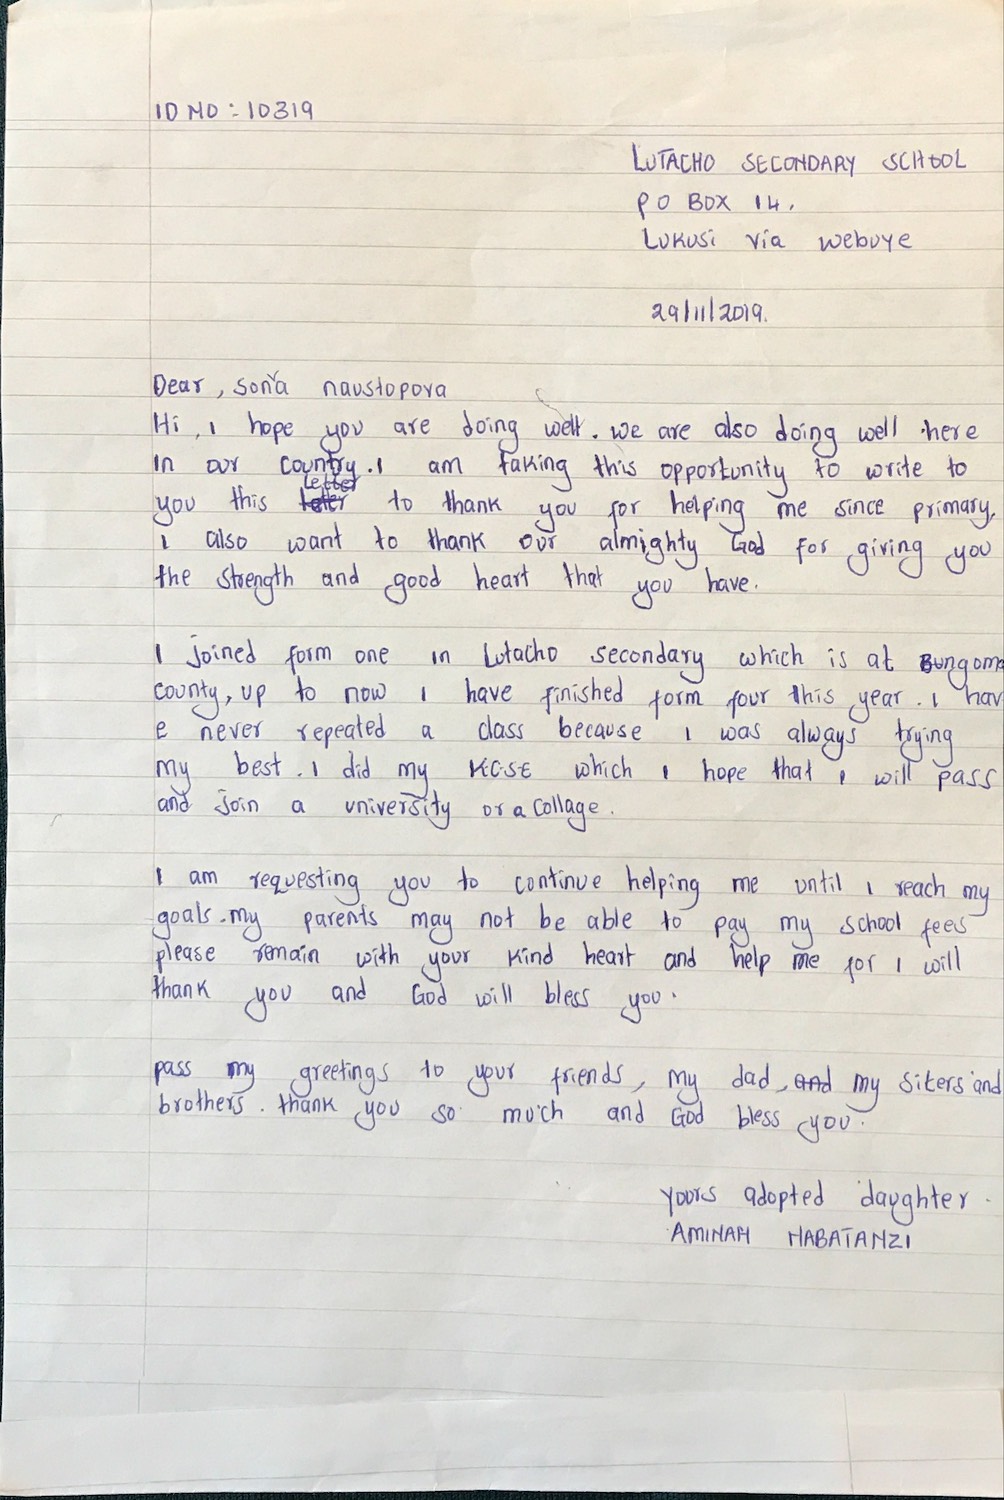 ID NO: 10319
LUTACHO SECONDARY SCHOOL
P O BOX 14.
LUKUSI via webuye
29/11/2019.
Dear, soňa naustopova
Hi, I hope you are doing well. we are also doing well here
In our country. I am taking this opportunity to write to
you this letter to thank you for helping me since primary,
I also want to thank our almighty God for giving you
the strength and good heart that you have.
I joined form one in Lutacho secondary which is at Bungoma
county, up to now I have finished form four this year. I hav
e never repeated a class because I was always trying
my best. I did my KCSE which I hope that I will pass
and join a university or a collage.
I am requesting you to continue helping me until I reach my
goals. my parents may not be able to pay my school fees
please remain with your kind heart and help me for I will
thank you and God will bless you.
pass my greetings to your friends, my dad, my sikers and
brothers. thank you so much and God bless you.
yours adopted daughter.
AMINAH NABATANZI